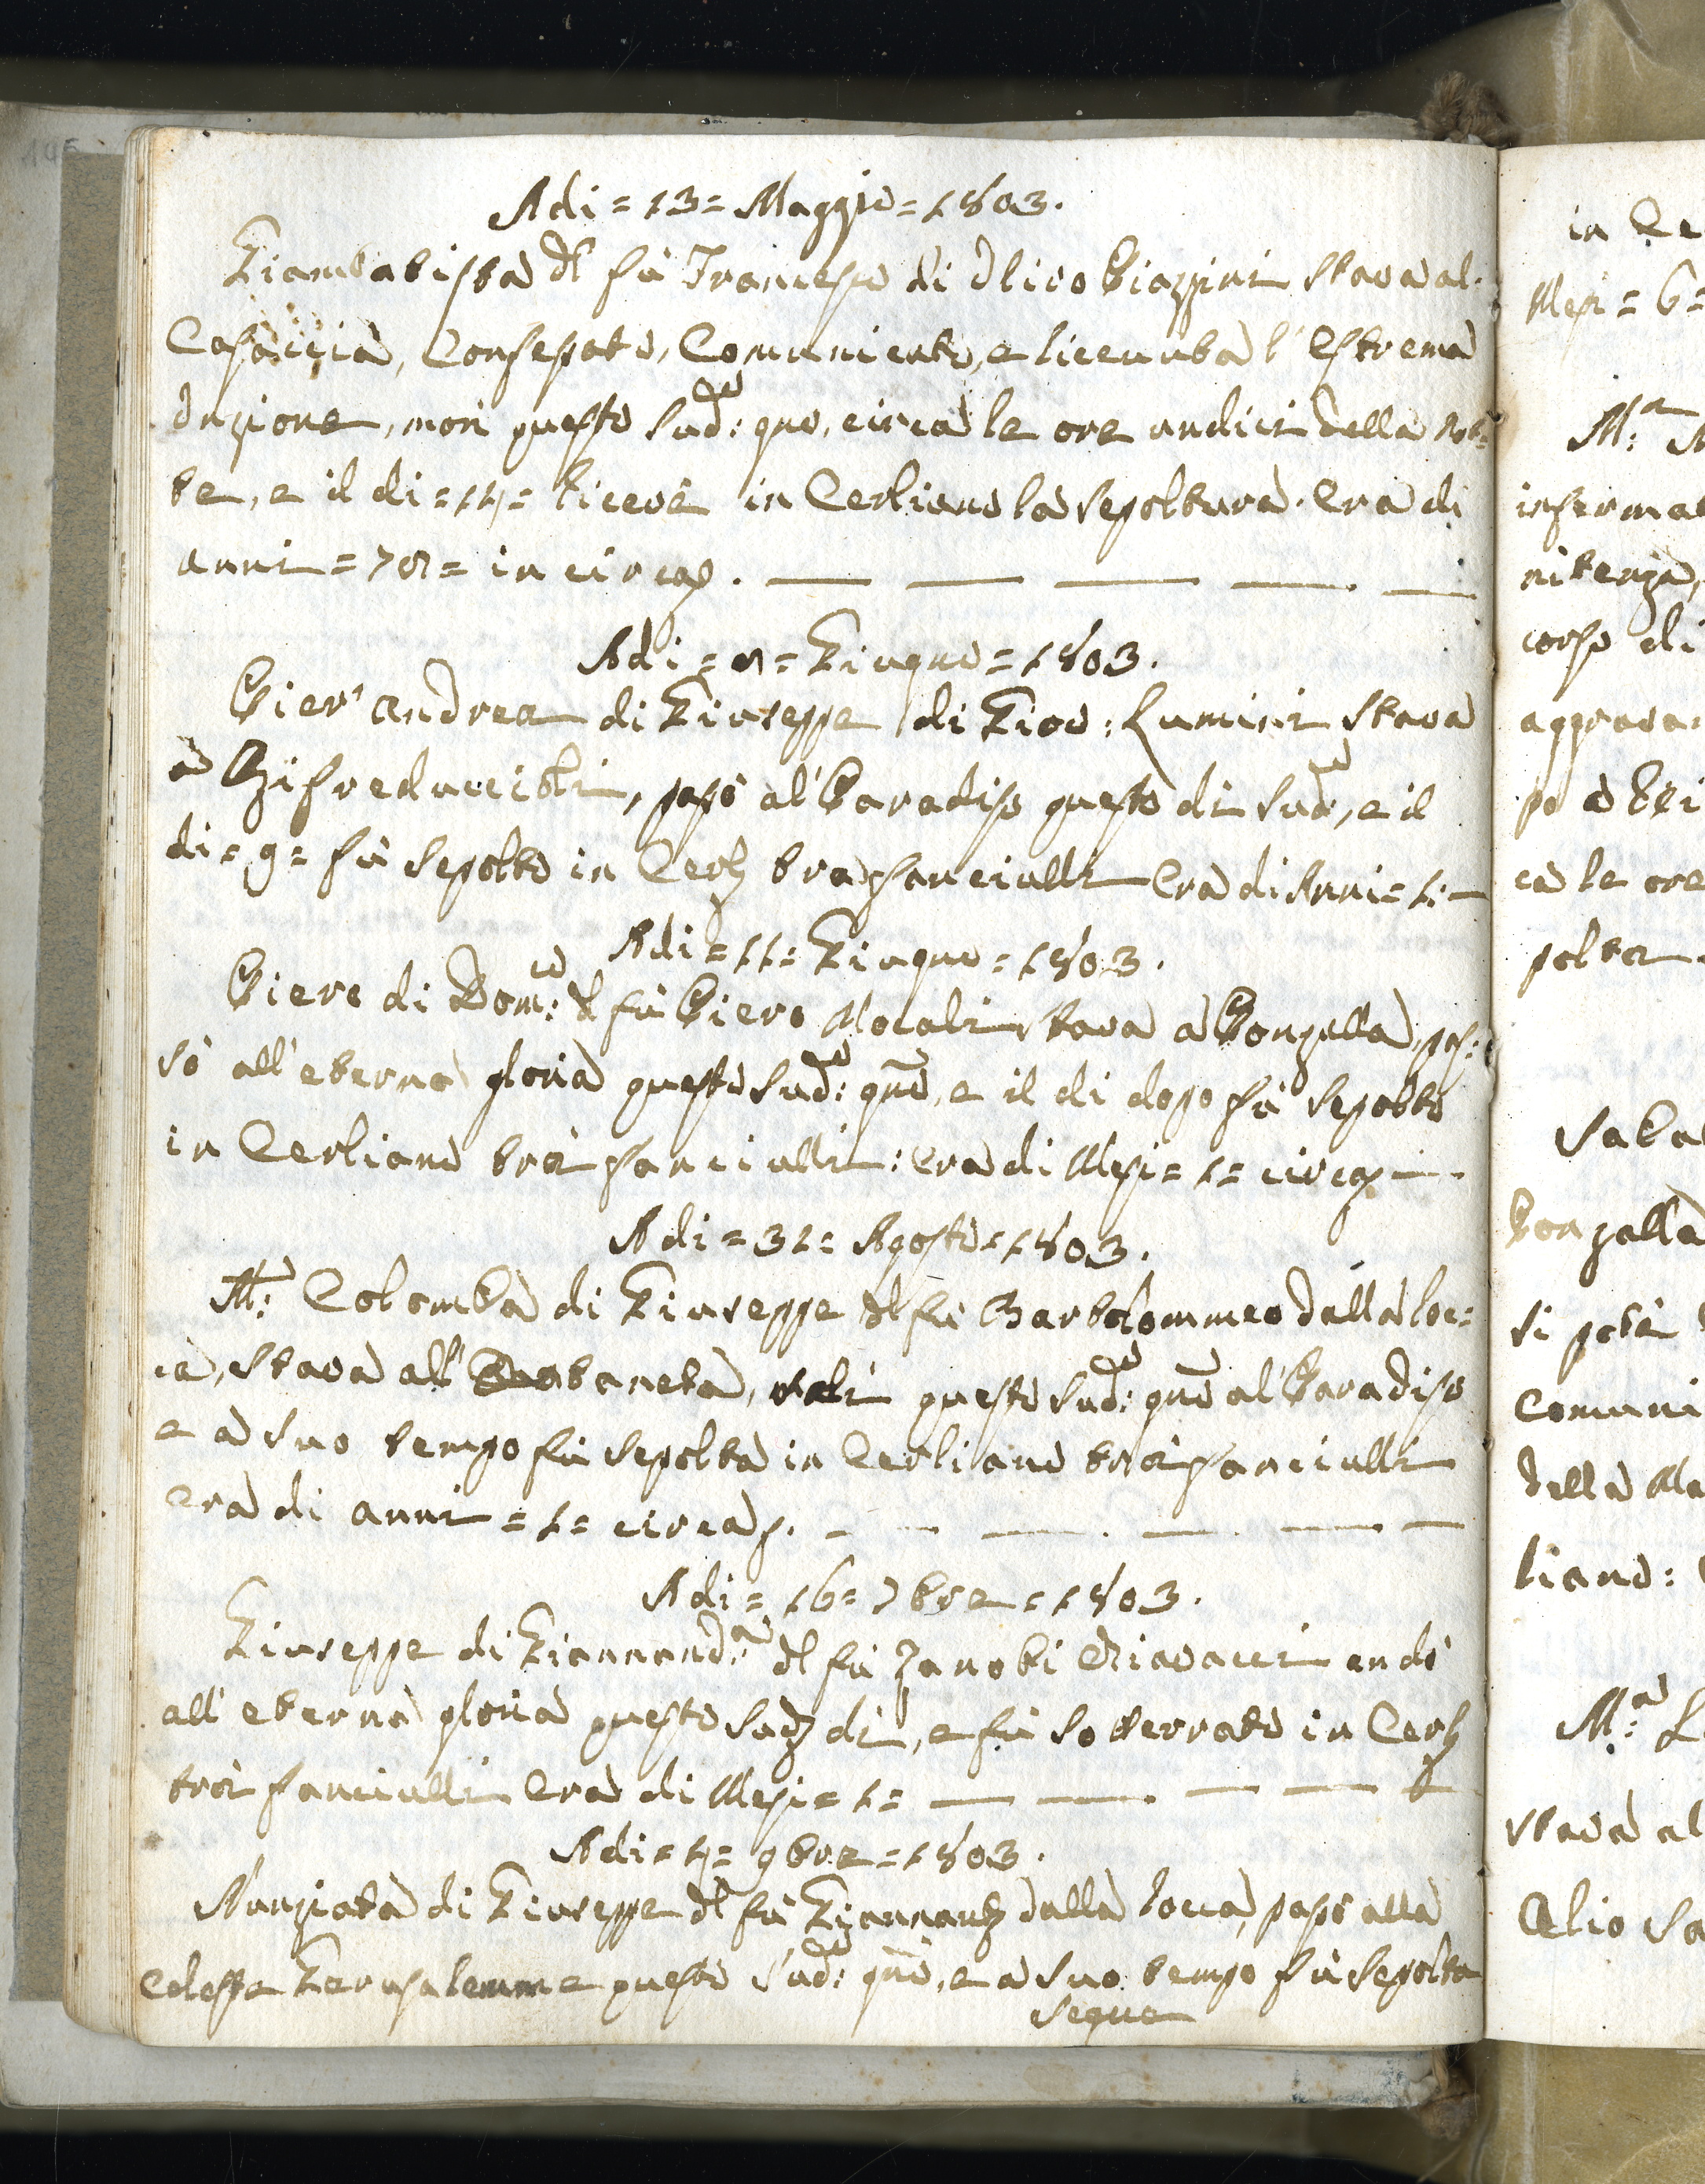 Adi = 13 = Maggio = 1803.
Giambatista dl fù Francesco di Ulivo Piazzini stava al
Casaccia, Confessato, Comunicato, e riceuuta l' Estrema
Unzione, morì questo sud:to gno, circa le ore undici della not=
te, e il di = 14 = riceuè in Cerliano la sepoltura. Era di
anni = 78 = in circa.
Adi = 8 = Giugno = 1803.
Pier' andrea di Giuseppe di Gio: Lumini stava
a, passò al' Paradiso questo di sud:to, e il
di = 9 = fù sepolto in Cerl: tra fanciulli Era di Anni = 1. —
Adi = 11 = Giugno = 1803.
Piero di Dom:co dl fù Piero Mocali stava a Ponzalla, pas:
sò all' eterna gloria questo sud:to gno, e il di dopo fù sepolto
in Cerliano trà fanciulli: era di Mesi = 1 = circa
Adi = 31 = Agosto = 1803.
M:a Colomba di Giuseppe dl fù Bartolommeo dalla roc=
ca, stava all', salì questo sud:to gno al' Paradiso
e a suo tempo fù sepolta in Cerliano trà fanciulli
era di anni = 1 = circa.
Adi = 16 = 7bre = 1803.
Giuseppe di Giannand:a dl fù Zanobi Chiavacci andò
all' eterna gloria questo sud: di, e fù sotterrato in Cerl:
trà fanciulli era di Mesi = 1 =
Adi = 4 = 9bre = 1803.
Nunziata di Giuseppe dl fù Giannant: dalla rocca, passò alla
celeste Gerusalemme questo sud:to gno, e a suo tempo fù sepolta
segue
in Ce
Mesi = 6 =
M:a
inferma
nitenza,
corso di
aggrava=
po
ca le ore
polta.
Ponzalla
si potè
Comuni
della Ma
liano:
M:a L
stava al